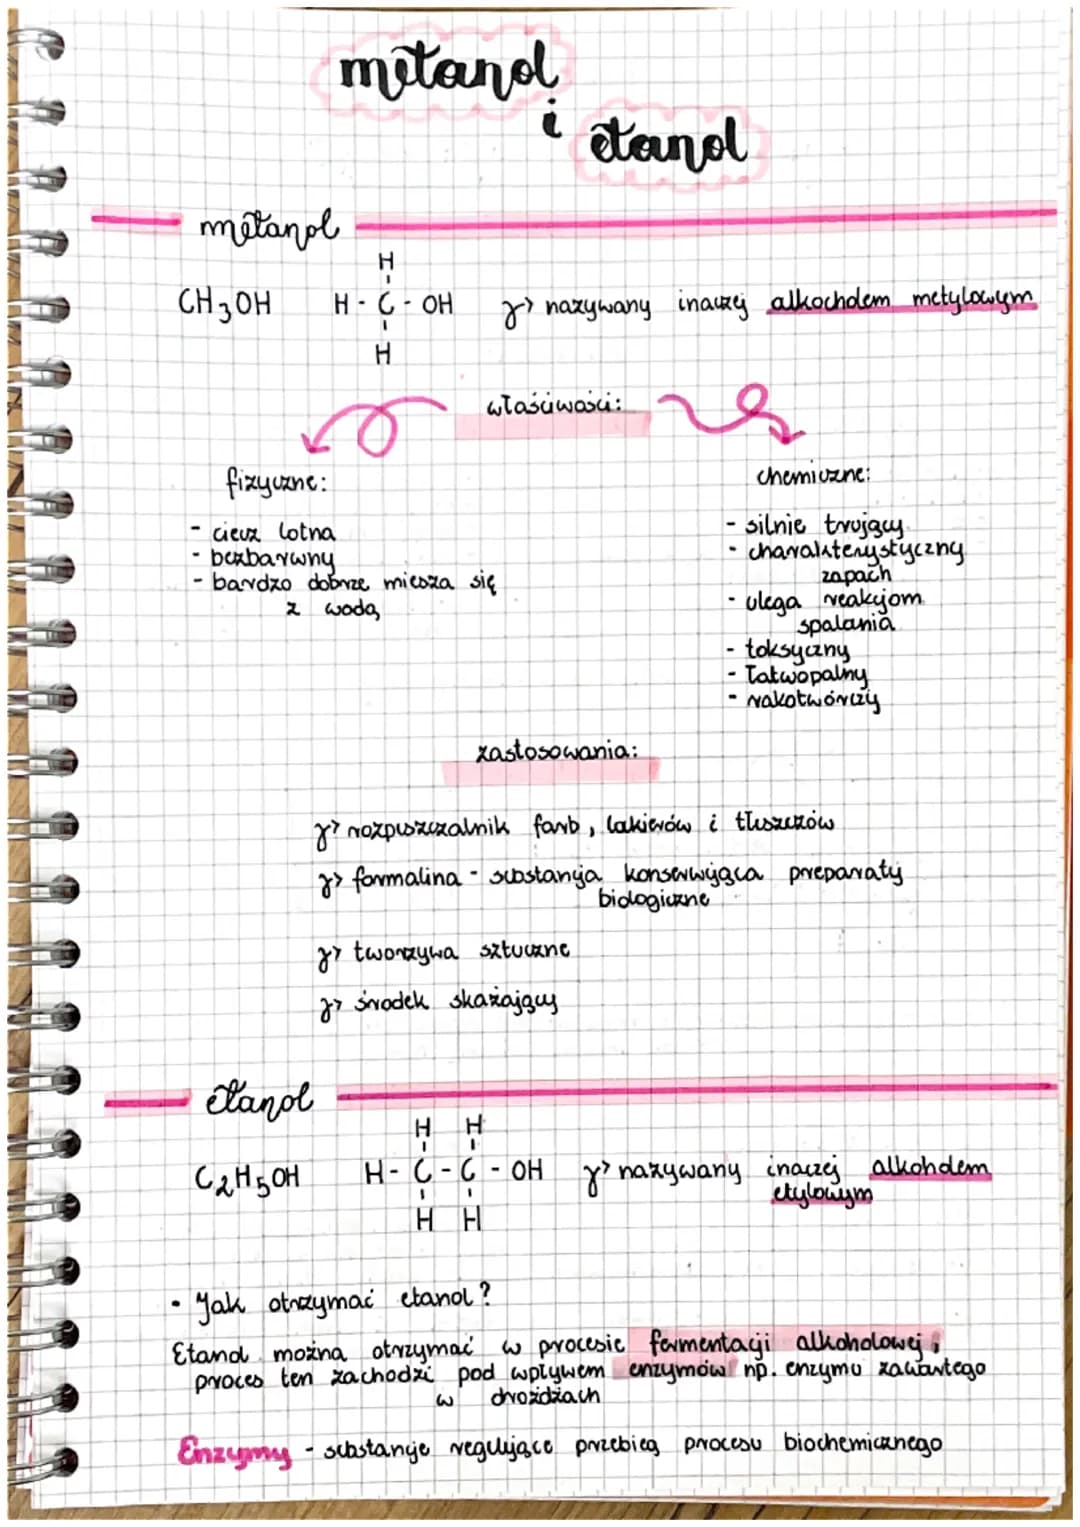 metanol
i
etanol
metanol
CH3OH
H
H - C - OH
H
γ> nazywany inaczej alkocholem metylowym
właściwości:
fizyczne:
- ciecz lotna
- bezbarwny
- bardzo dobrze miesza się
z wodą
chemiczne:
- silnie trujący
- charakterystyczny
zapach
- ulega reakcjom
spalania
- toksyczny
- łatwopalny
- rakotwórczy
zastosowania:
γ> rozpuszczalnik farb, lakierów i tłuszczów
γ> formalina - substancja konserwująca preparaty
biologiczne
γ> tworzywa sztuczne
γ> środek skażający
etanol
C2H5OH
H H
H - C - C - OH
H H
γ> nazywany inaczej alkoholem
etylowym
• Jak otrzymać etanol?
Etanol można otrzymać w procesie fermentacji alkoholowej,
proces ten zachodzi pod wpływem enzymów np. enzymu zawartego
w drożdżach
Enzymy - substancje regulujące przebieg procesu biochemicznego